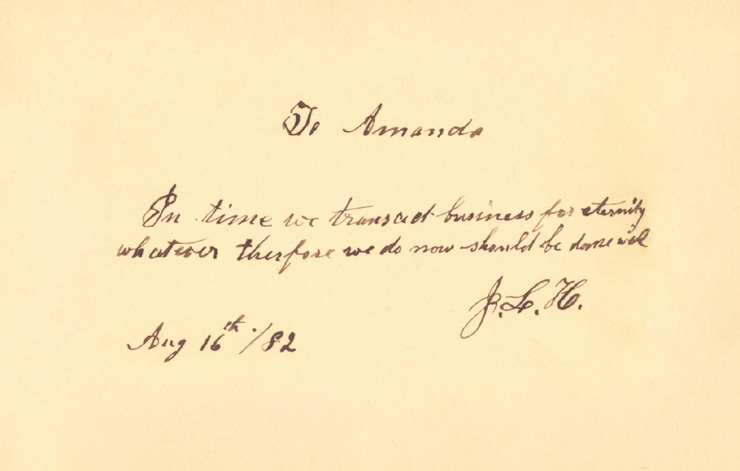 To Amanda
In time we transact business for eternity
whatever therfore we do now should be done well
J. L. H.
Aug 16th /82